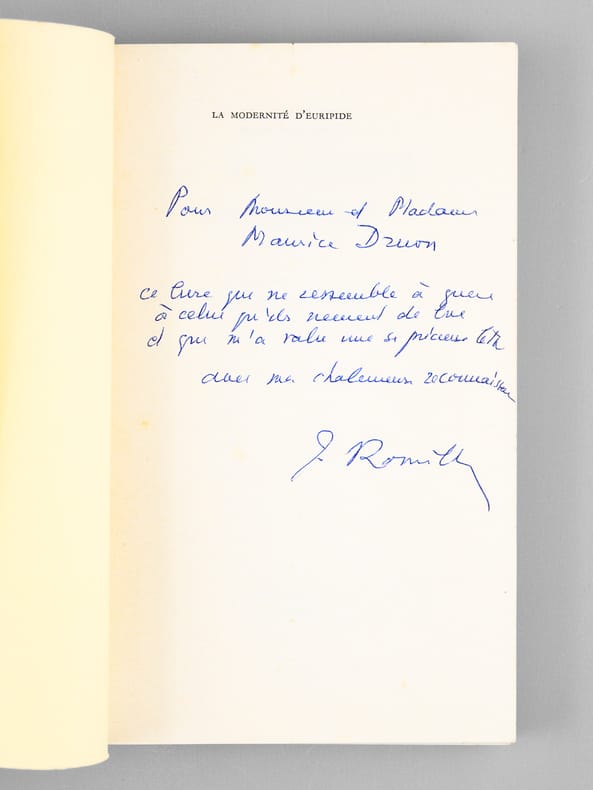 LA MODERNITÉ D'EURIPIDE
Pour Monsieur et Madame
Maurice Druon
ce livre qui ne ressemble à guère
à celui qu'ils viennent de lire
et qui m'a valu une si précieuse lettre
avec ma chaleureuse reconnaissance
J. Romilly